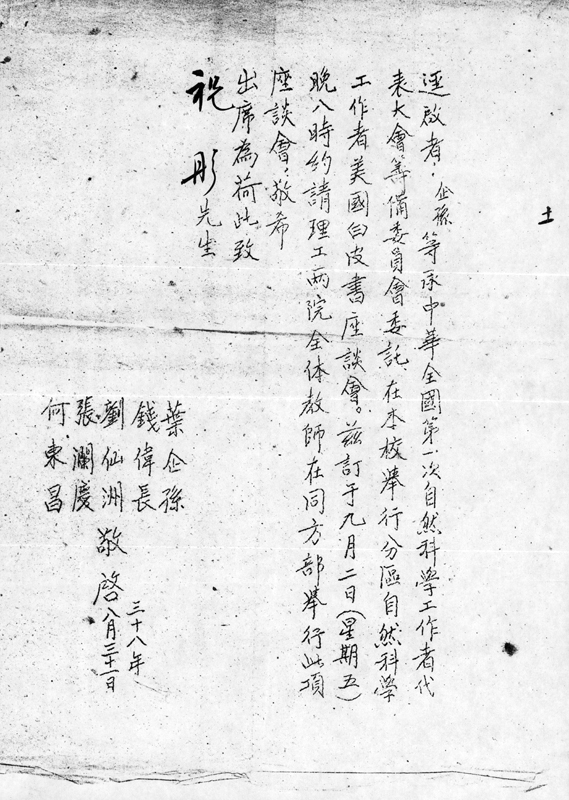 土
逕啟者,企孫等承中華全國第一次自然科學工作者代
表大會籌備委員會委託在本校舉行分區自然科學
工作者美國白皮書座談會。茲訂于九月二日(星期五)
晚八時約請理工兩院全体教師在同方部舉行此項
座談會,敬希
出席為荷此致
祝彤先生
葉企孫
錢偉長
劉仙洲 敬啓
張瀾慶
何東昌
三十八年
八月三十一日